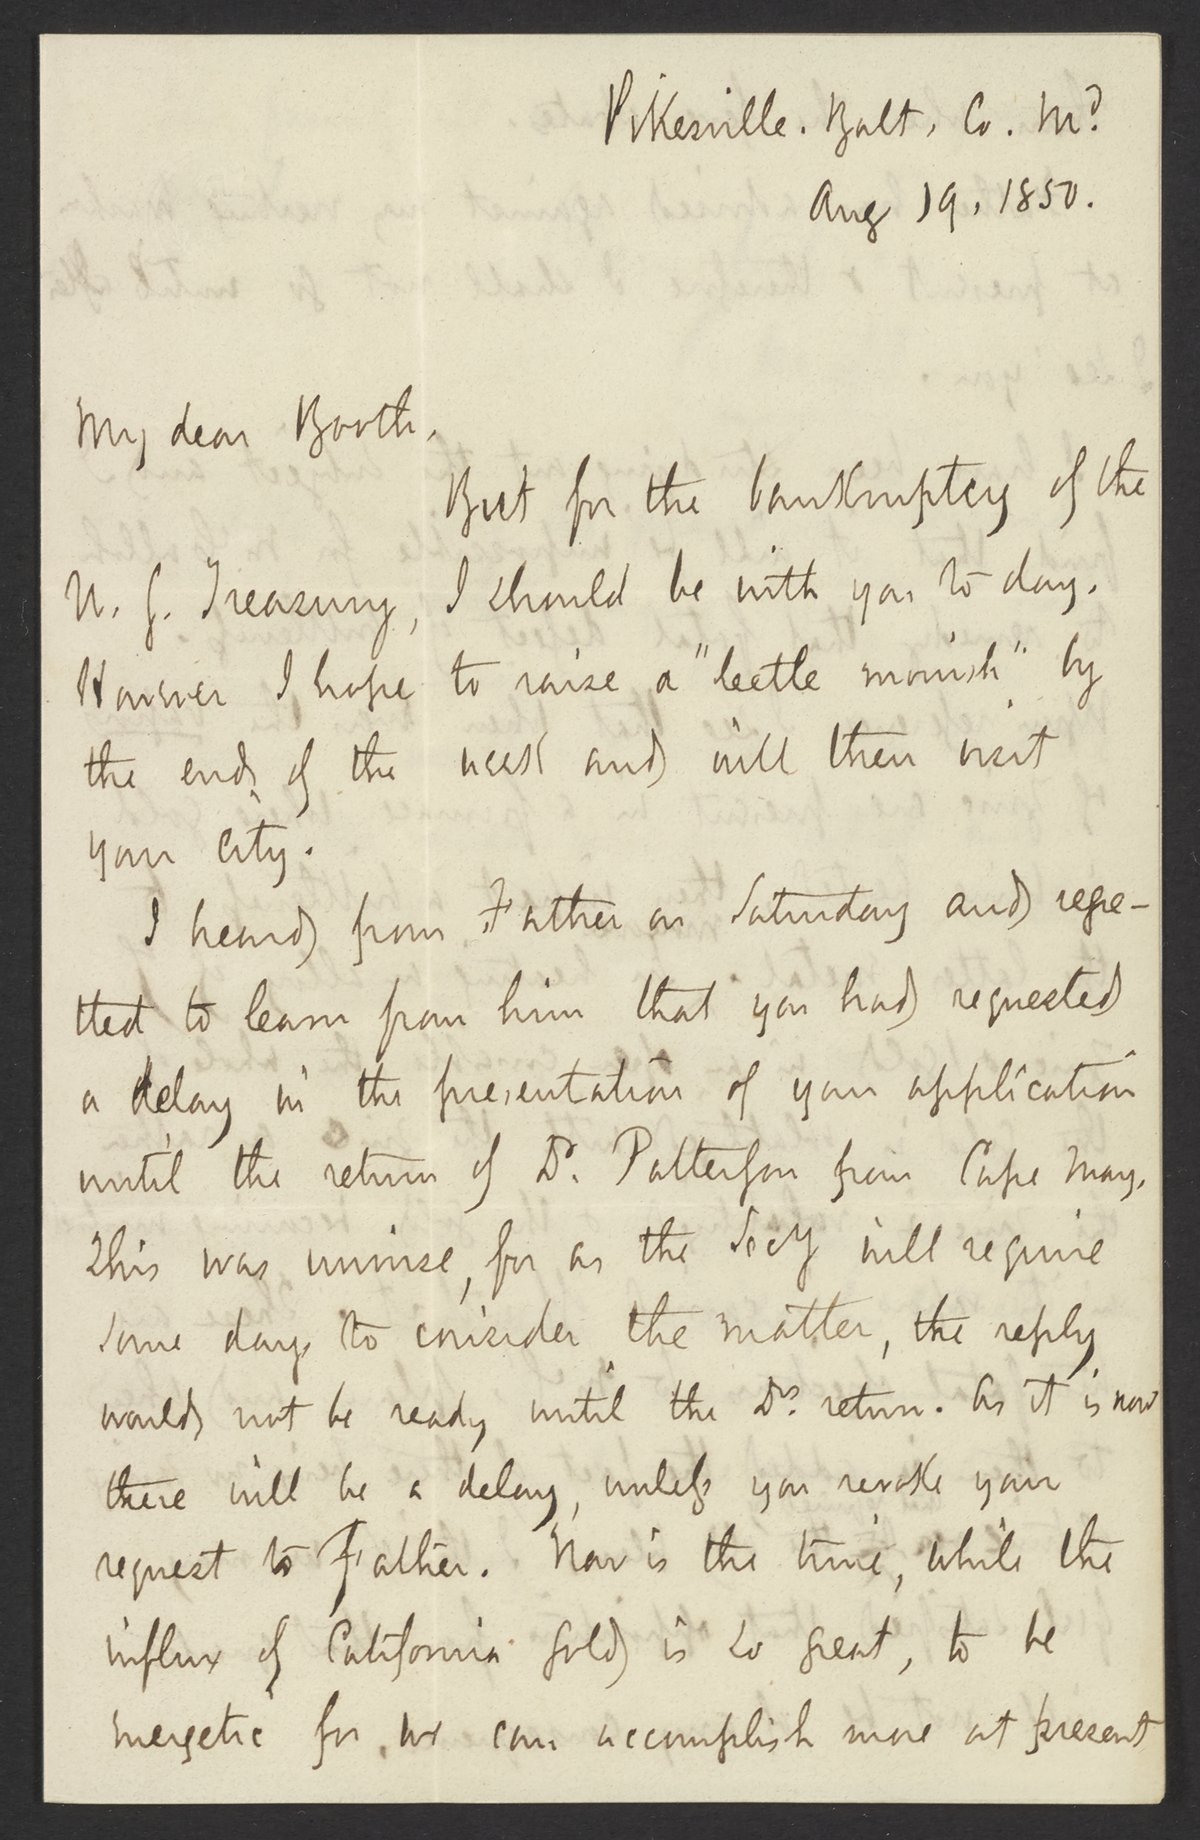 Pikesville. Balt, Co. Md.
Aug 19, 1850.
My dear Booth,
But for the bankruptcy of the
U. S. Treasury, I should be with you to day.
However I hope to raise a "leetle monish" by
the end, of the week and will then visit
your city.
I heard from Father on Saturday and regre-
tted to learn from him that you had requested
a delay in the presentation of your application
until the return of Dr. Patterson from Cape May.
This was unwise, for as the Secy will require
some days to consider the matter, the reply
would not be ready until the Drs. return. As it is now
there will be a delay, unless you revoke your
request to Father. Now is the time, while the
influx of California gold is so great, to be
energetic for we can accomplish more at present